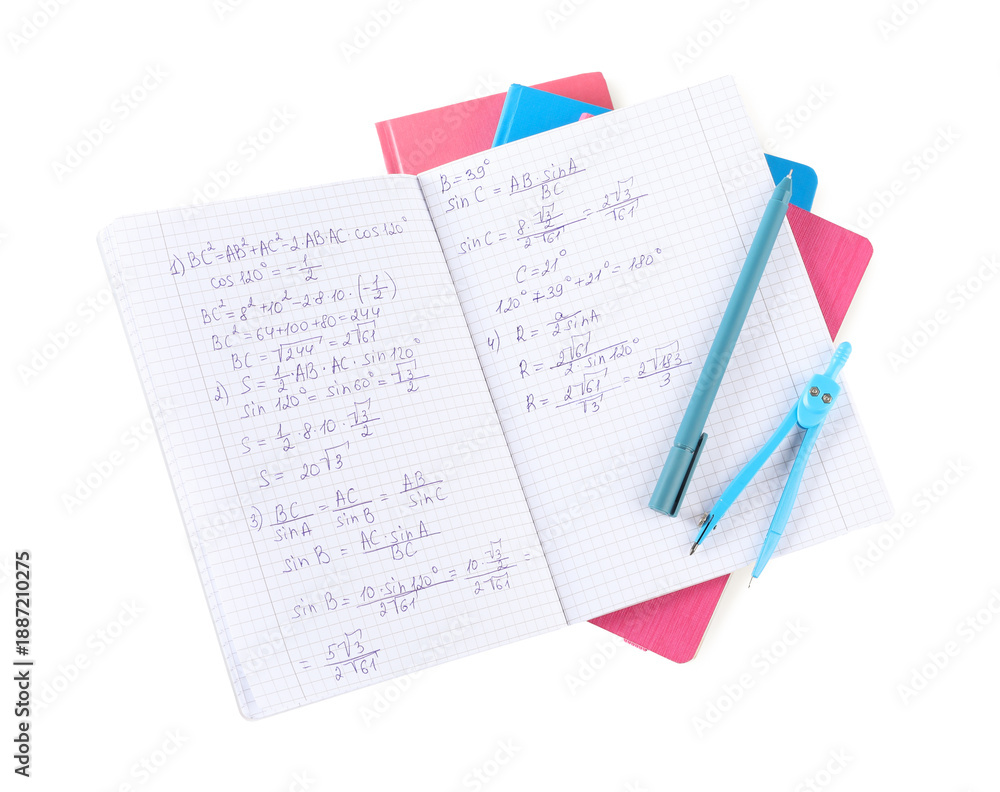 1) BC²=AB²+AC²-2·AB·AC·cos120°
cos120°=-1/2
BC²=8²+10²-2·8·10·(-1/2)
BC²=64+100+80=244
BC=√244=2√61
2) S=1/2·AB·AC·sin120°
sin120°=sin60°=√3/2
S=1/2·8·10·√3/2
S=20√3
3) BC/sinA=AC/sinB=AB/sinC
sinB=AC·sinA/BC
sinB=10·sin120°/2√61=10·√3/2/2√61=
=5√3/2√61
B=39°
sinC=AB·sinA/BC
sinC=8·√3/2/2√61=2√3/√61
C=21°
120°+39°+21°=180°
4) R=a/2sinA
R=2√61/2·sin120°
R=2√61/√3=2√183/3
Adobe Stock | #1887210275